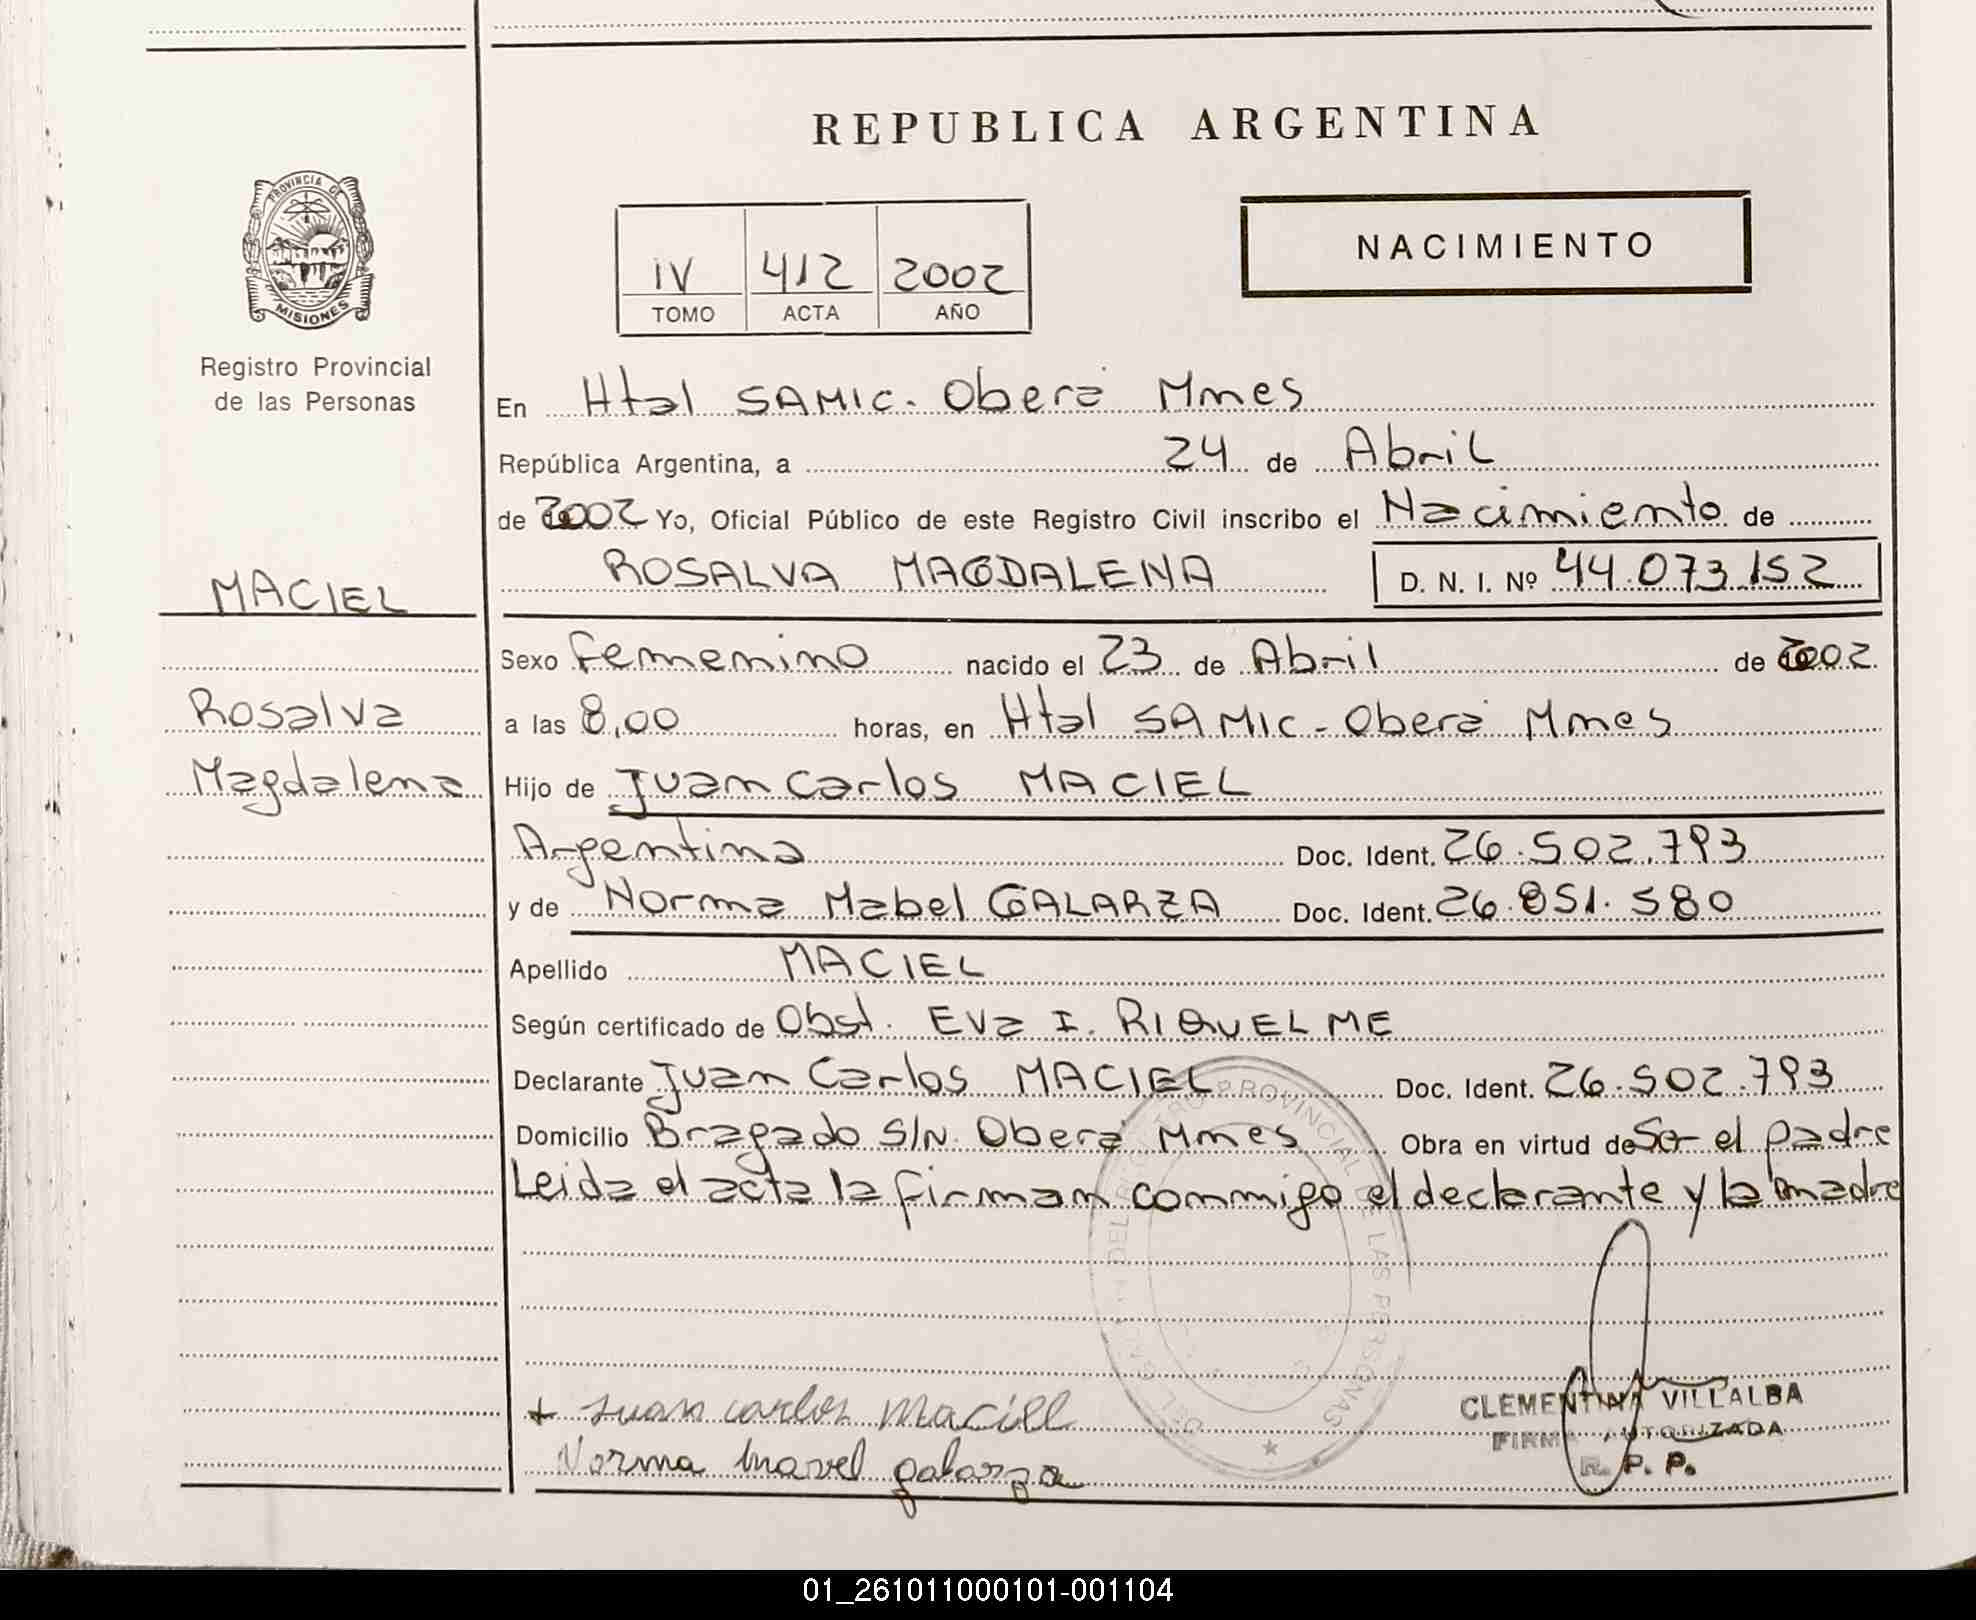 REPUBLICA ARGENTINA
PROVINCIA DE
MISIONES
Registro Provincial
de las Personas
IV 412 2002
TOMO ACTA AÑO
NACIMIENTO
En Htal SAMIC. Oberá Mnes
República Argentina, a 24 de Abril
de 2002 Yo, Oficial Público de este Registro Civil inscribo el Nacimiento de
ROSALVA MAGDALENA D. N. I. Nº 44.073.152
MACIEL
Rosalva
Magdalena
Sexo Femenino nacido el 23 de Abril de 2002
a las 8,00 horas, en Htal SAMIC - Oberá Mnes
Hijo de Juan Carlos MACIEL
Argentina Doc. Ident. 26.502.793
y de Norma Mabel GALARZA Doc. Ident. 26.851.580
Apellido MACIEL
Según certificado de Obst. Eva I. RIQUELME
Declarante Juan Carlos MACIEL Doc. Ident. 26.502.793
Domicilio Bragado S/N. Oberá Mnes Obra en virtud de Ser el padre
Leida el acta la firman conmigo el declarante y la madre
REGISTRO PROVINCIAL DE LAS PERSONAS
+ Juan carlos Maciell
Norma mavel galarza
CLEMENTINA VILLALBA
FIRMA AUTORIZADA
R. P. P.
01_261011000101-001104